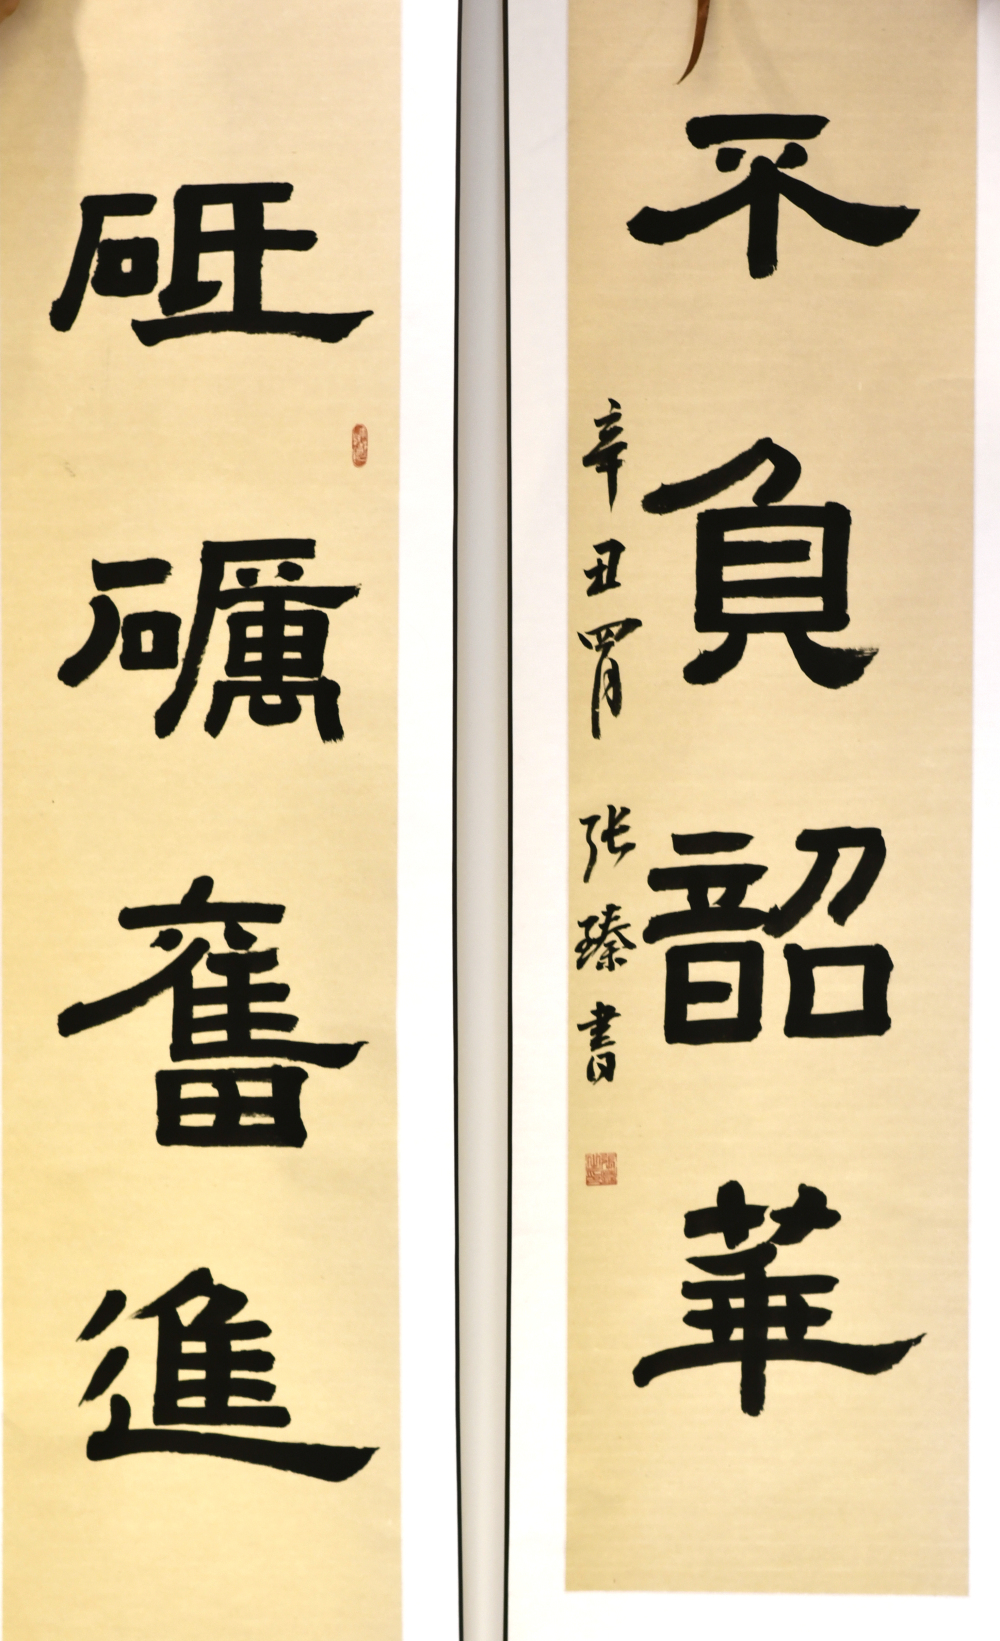 砥礪奮進
不負韶華
辛丑四月 张臻書